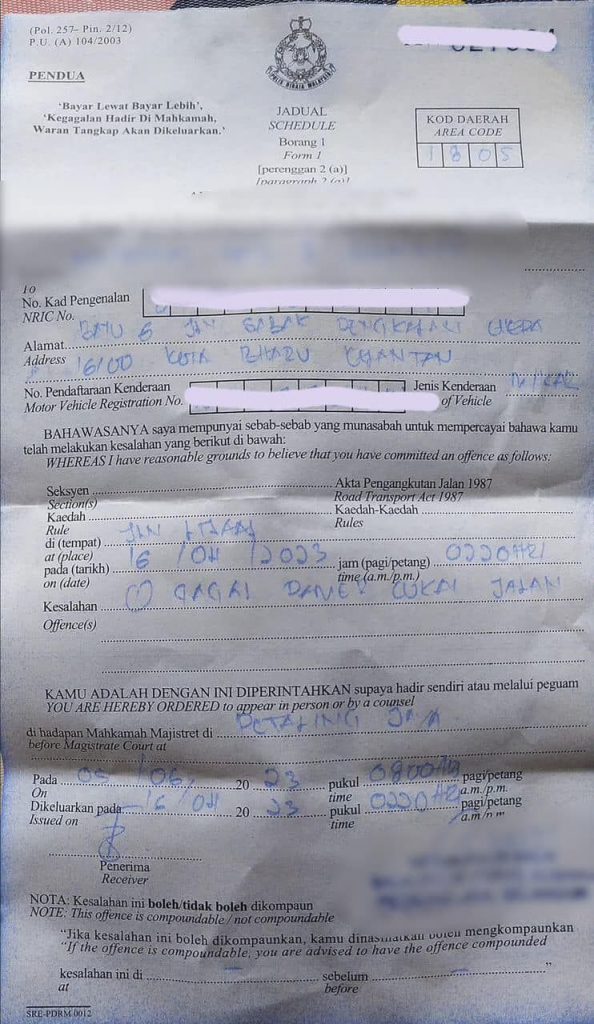 (Pol. 257– Pin. 2/12)
P.U. (A) 104/2003
PENDUA
'Bayar Lewat Bayar Lebih',
'Kegagalan Hadir Di Mahkamah,
Waran Tangkap Akan Dikeluarkan.'
POLIS DIRAJA MALAYSIA
JADUAL
SCHEDULE
Borang 1
Form 1
[perenggan 2 (a)]
[paragraph 2 (a)]
KOD DAERAH
AREA CODE
1805
To
No. Kad Pengenalan
NRIC No.
Alamat BATU 5 JLN SABAK PENGKALAN CHEPA
Address 16100 KOTA BHARU KELANTAN
No. Pendaftaraan Kenderaan Jenis Kenderaan M/KAR
Motor Vehicle Registration No. of Vehicle
BAHAWASANYA saya mempunyai sebab-sebab yang munasabah untuk mempercayai bahawa kamu
telah melakukan kesalahan yang berikut di bawah:
WHEREAS I have reasonable grounds to believe that you have committed an offence as follows:
Seksyen Akta Pengangkutan Jalan 1987
Section(s) Road Transport Act 1987
Kaedah Kaedah-Kaedah
Rule Rules
di (tempat) JLN
at (place)
pada (tarikh) 16 / 04 / 2023 jam (pagi/petang) 0220HRS
on (date) time (a.m./p.m.)
Kesalahan GAGAL PAMER CUKAI JALAN
Offence(s)
KAMU ADALAH DENGAN INI DIPERINTAHKAN supaya hadir sendiri atau melalui peguam
YOU ARE HEREBY ORDERED to appear in person or by a counsel
di hadapan Mahkamah Majistret di PETALING JAYA
before Magistrate Court at
Pada 05 / 06 / 20 23 pukul 0800HRS pagi/petang
On time a.m./p.m.
Dikeluarkan pada 16 / 04 20 23 pukul 0220HRS pagi/petang
Issued on time a.m/p.m
Penerima
Receiver
NOTA: Kesalahan ini boleh/tidak boleh dikompaun
NOTE: This offence is compoundable / not compoundable
"Jika kesalahan ini boleh dikompaunkan, kamu dinasihatkan boleh mengkompaunkan
"If the offence is compoundable, you are advised to have the offence compounded
kesalahan ini di – sebelum – "
at before
SRE-PDRM 0012